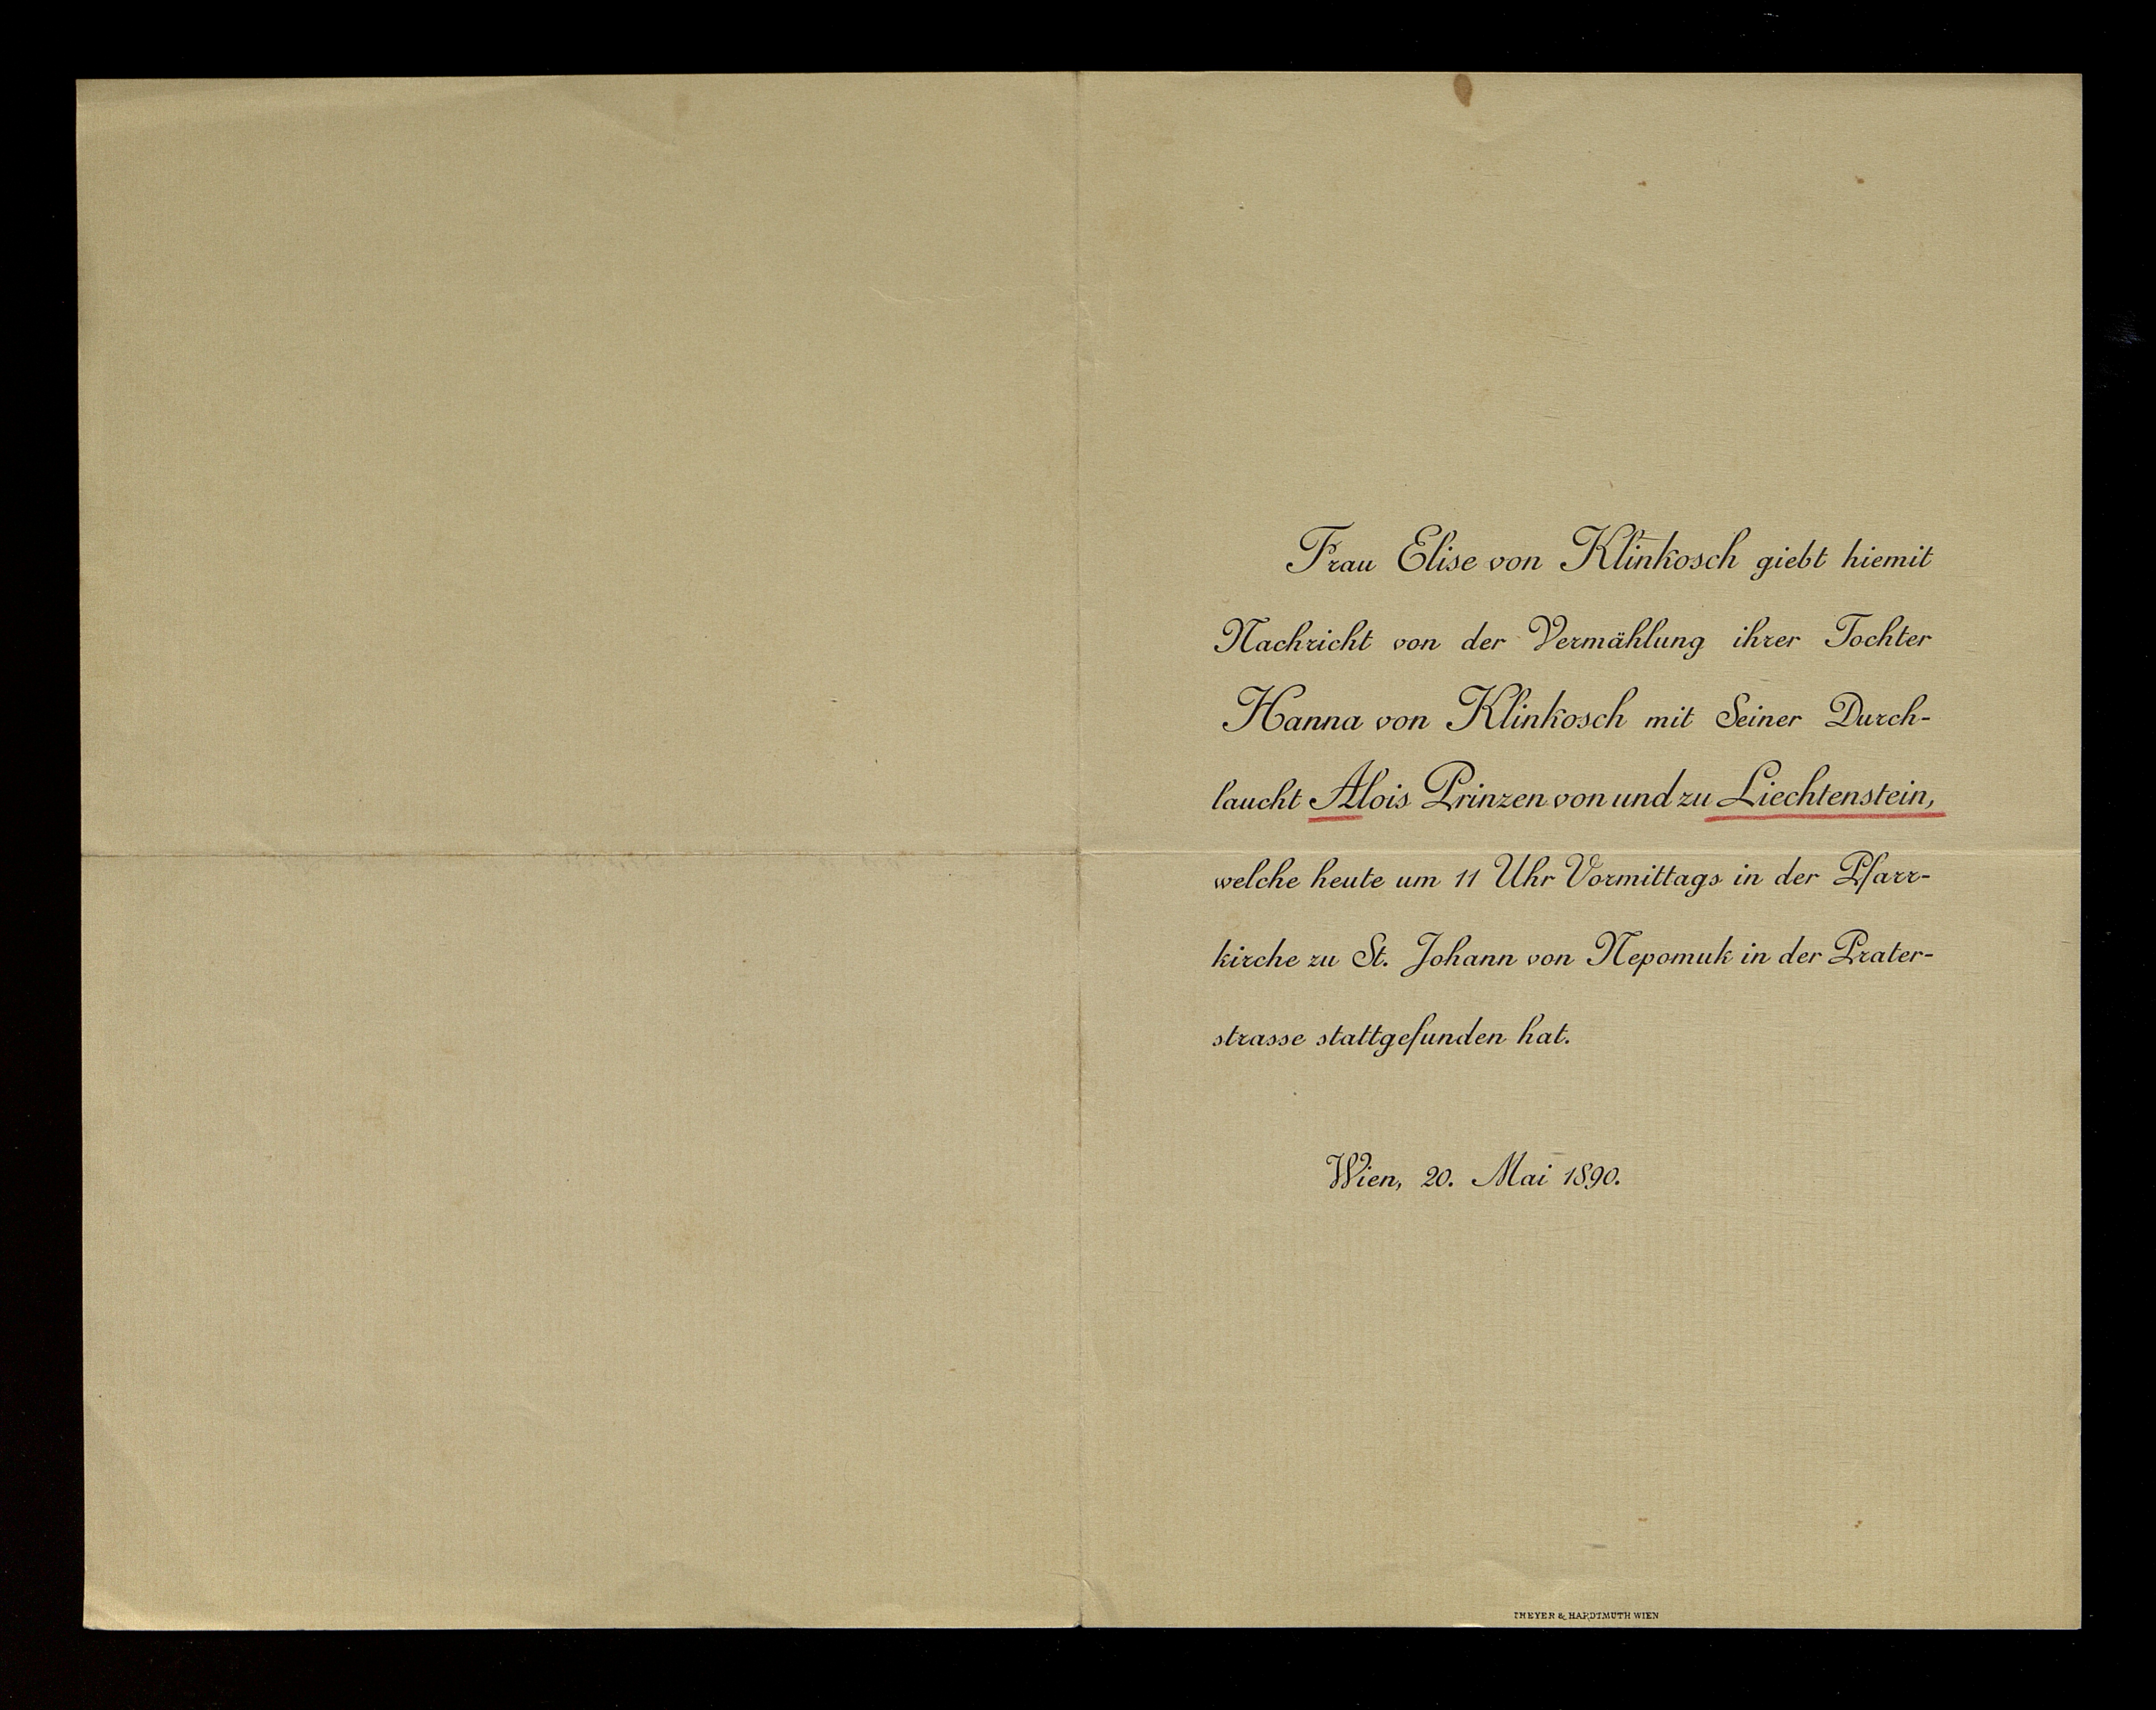 Frau Elise von Klinkosch giebt hiemit
Nachricht von der Vermählung ihrer Tochter
Hanna von Klinkosch mit Seiner Durch-
laucht Alois Prinzen von und zu Liechtenstein,
welche heute um 11 Uhr Vormittags in der Pfarr-
kirche zu St. Johann von Nepomuk in der Prater-
strasse stattgefunden hat.
Wien, 20. Mai 1890.
THEYER & HARDTMUTH WIEN